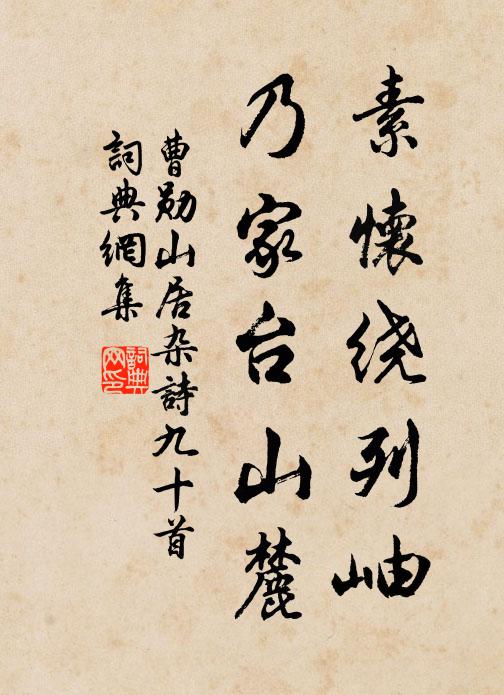 素懷绕列岫
乃家台山麓
曹勋山居杂詩九十首
詞典網集
詞典網印